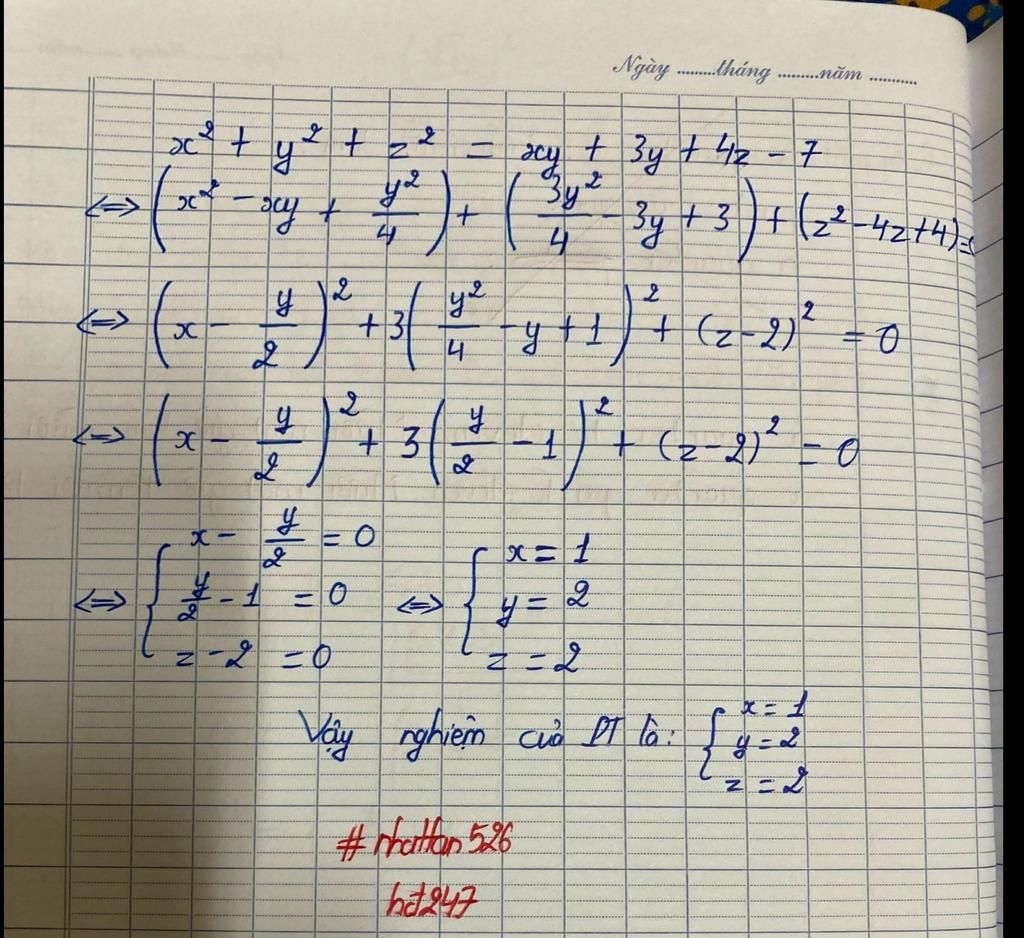 Ngày .........tháng .........năm ...........
x² + y² + z² = xy + 3y + 4z - 7
⇔ (x² - xy + y²/4) + (3y²/4 - 3y + 3) + (z² - 4z + 4) =
⇔ (x - y/2)² + 3(y²/4 - y + 1)² + (z - 2)² = 0
⇔ (x - y/2)² + 3(y/2 - 1)² + (z - 2)² = 0
⇔ { x - y/2 = 0 ⇔ { x = 1
y/2 - 1 = 0 y = 2
z - 2 = 0 z = 2
Vậy nghiệm của PT là: { x = 1
y = 2
z = 2
hd247